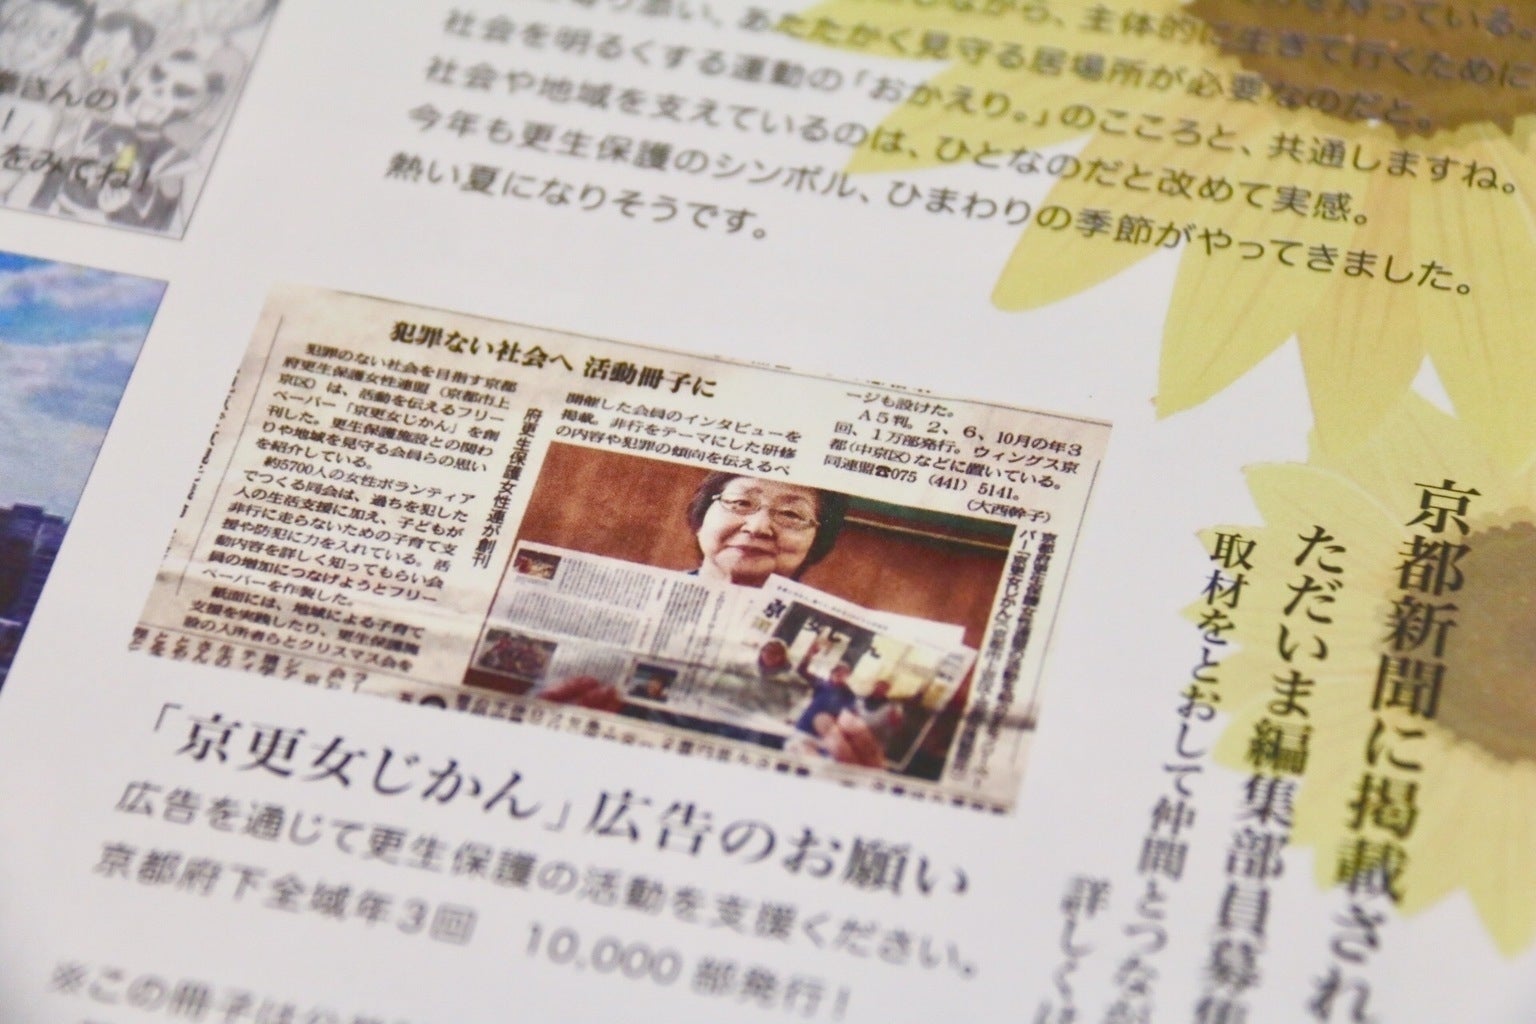 主体的に生きて行くために
あたたかく見守る居場所が必要なのだと。
社会を明るくする運動の「おかえり。」のこころと、共通しますね。
社会や地域を支えているのは、ひとなのだと改めて実感。
今年も更生保護のシンボル、ひまわりの季節がやってきました。
熱い夏になりそうです。
さんの
！
をみてね！
犯罪ない社会へ 活動冊子に
府更生保護女性連が創刊
犯罪のない社会を目指す京都
府更生保護女性連盟（京都市上
京区）は、活動を伝えるフリー
ペーパー「京更女じかん」を創
刊した。更生保護施設との関わ
りや地域を見守る会員らの思い
を紹介している。
約5700人の女性ボランティア
でつくる同会は、過ちを犯した
人の生活支援に加え、子どもが
非行に走らないための子育て支
援や防犯に力を入れている。活
動内容を詳しく知ってもらい会
員の増加につなげようとフリー
ペーパーを作製した。
紙面には、地域による子育て
支援を実践したり、更生保護施
設の入所者らとクリスマス会を
開催した会員のインタビューを
掲載。非行をテーマにした研修
の内容や犯罪の傾向を伝えるペ
ージも設けた。
Ａ５判。2、6、10月の年３
回、１万部発行。ウィングス京
都（中京区）などに置いている。
同連盟☎075（441）5141。
（大西幹子）
「京更女じかん」広告のお願い
広告を通じて更生保護の活動を支援ください。
京都府下全域年３回　10,000 部発行！
※この冊子は
京都新聞に掲載され
ただいま編集部員募集
取材をとおして仲間とつなが
詳しくは